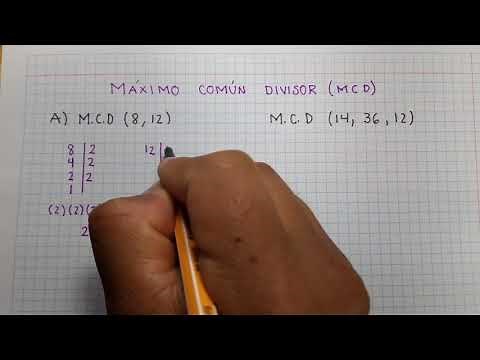 MÁXIMO COMÚN DIVISOR (MCD)
A) M.C.D (8, 12)
M.C.D (14, 36, 12)
8 | 2
4 | 2
2 | 2
1
12 |
(2)(2)(
2